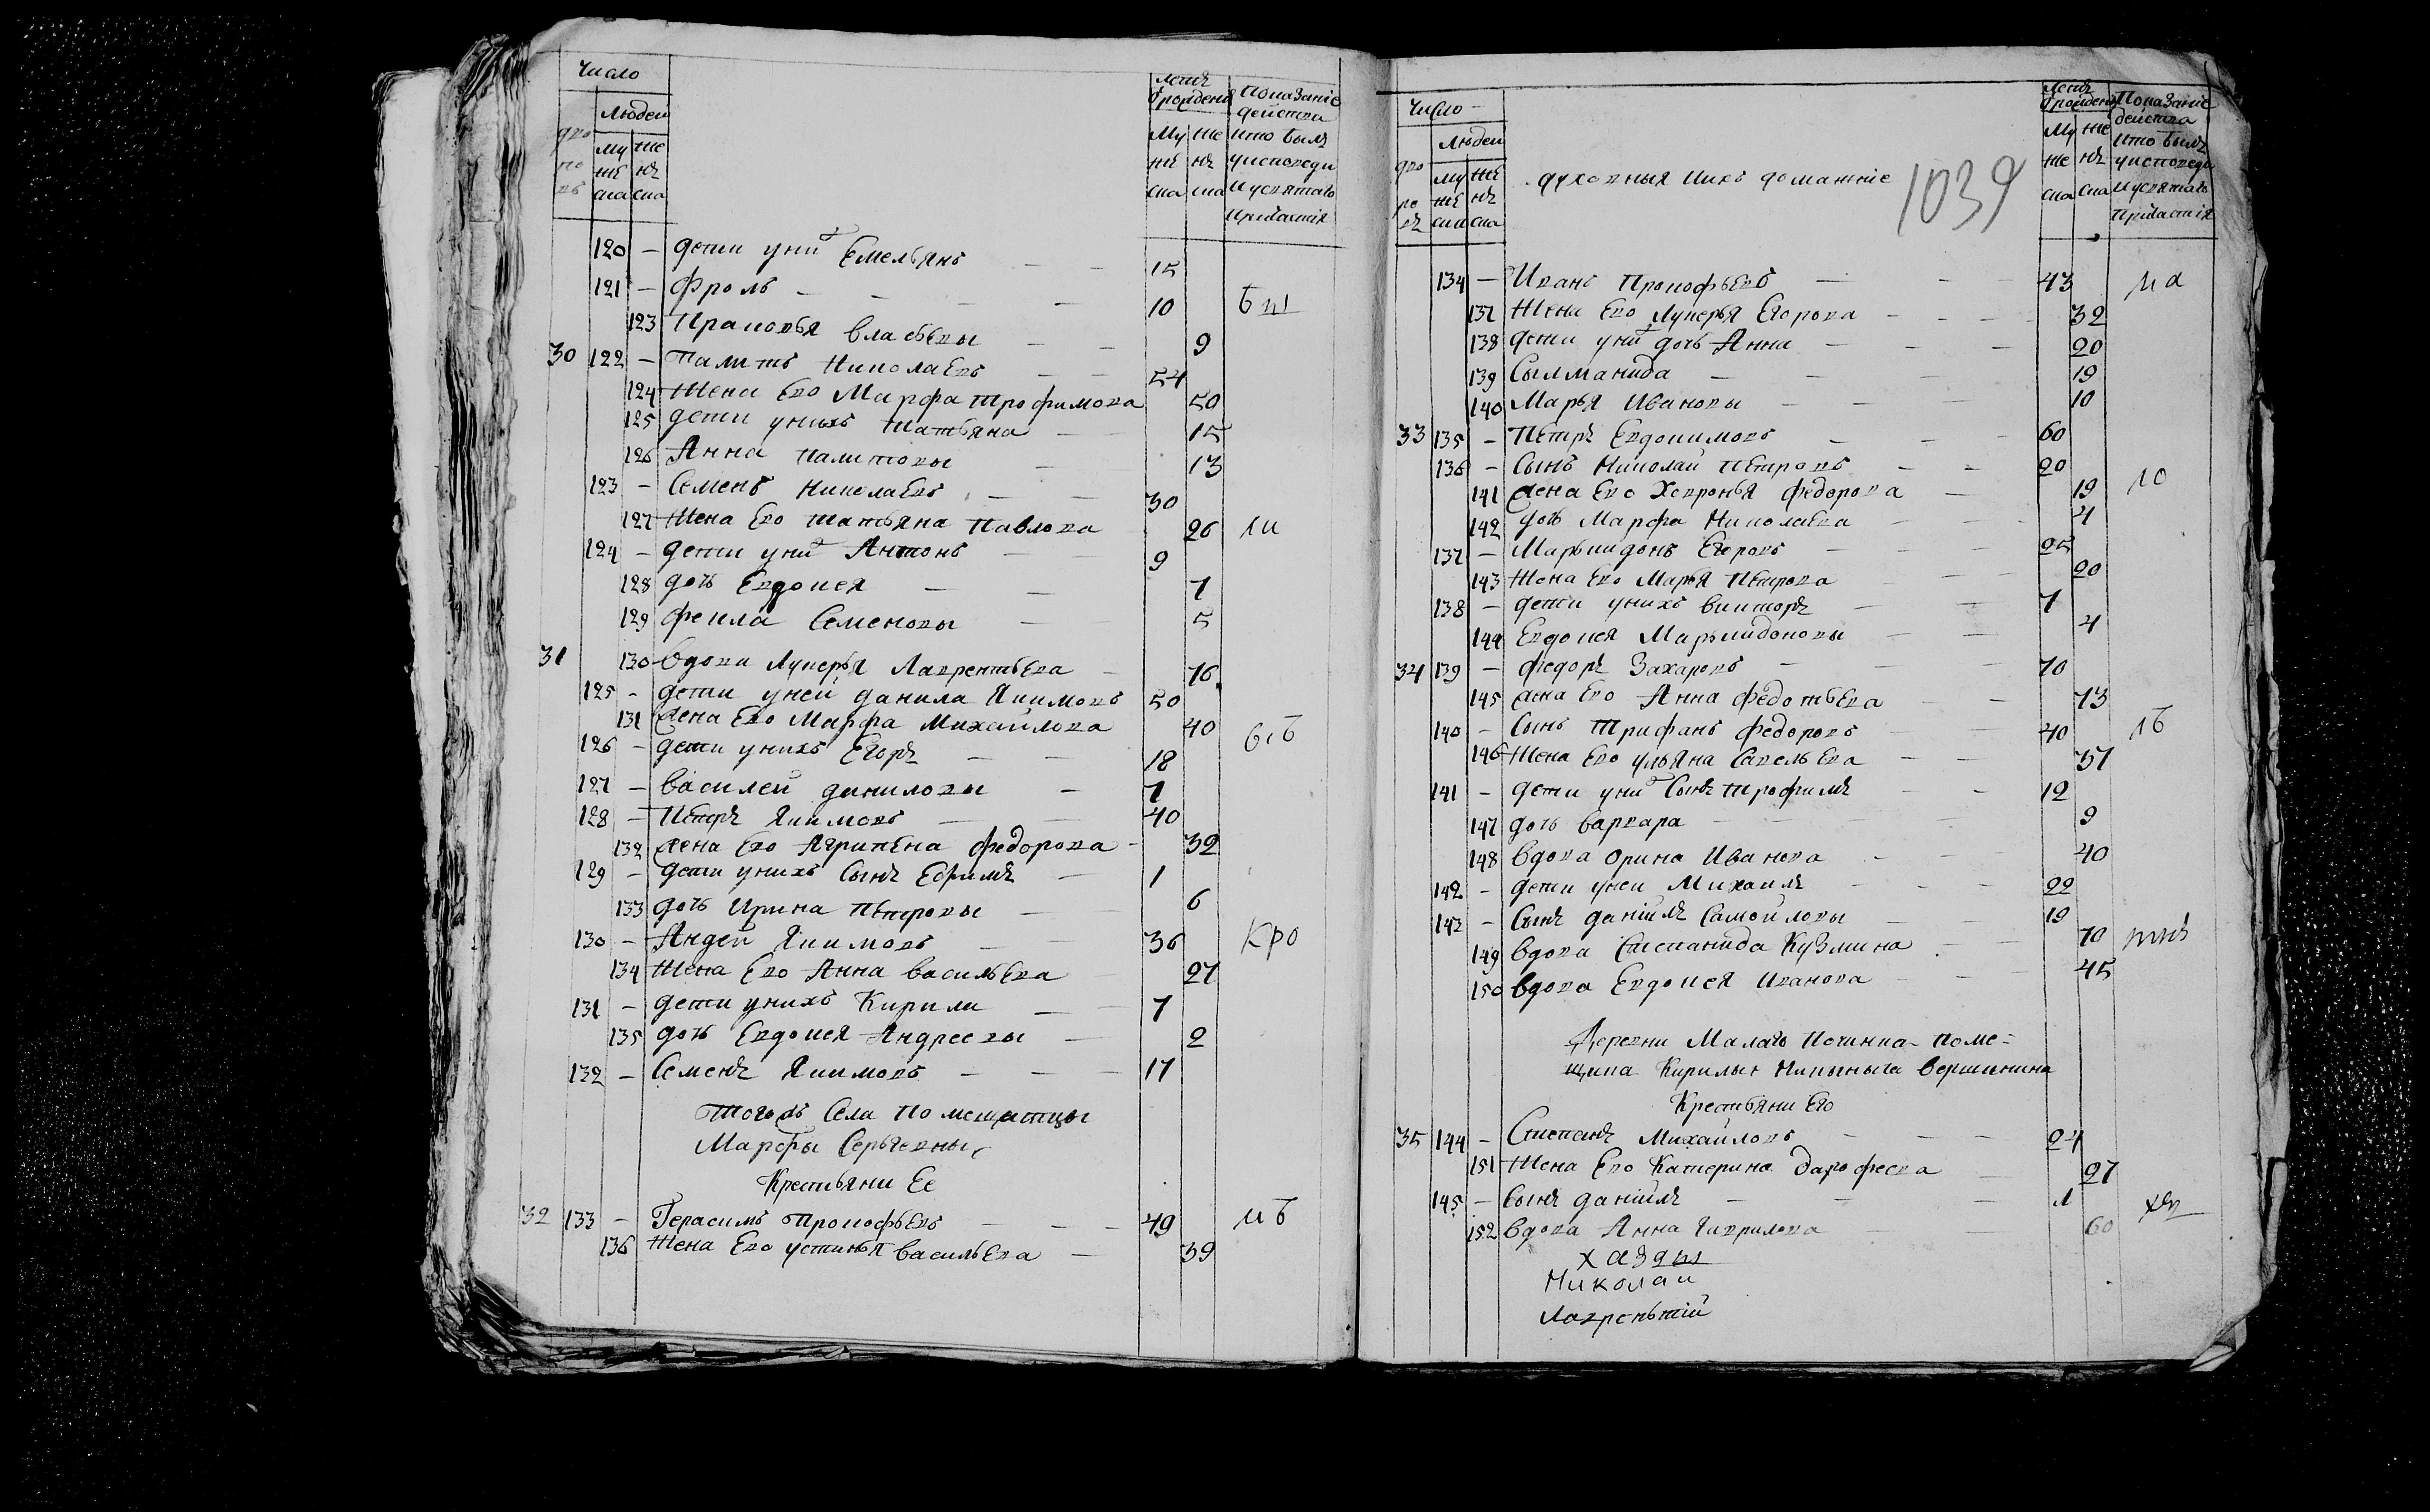 Число
Людей
дво
ро
въ
Му
же
ска
же
нъ
ска
Летъ
ѿ рождения
Му
же
ска
же
нъ
ска
Показаніе
действа
кто былъ
у исповеди
и у святаго
причастія
120 — дети у них Емельянъ — — 15
121 — Фролъ — — 10 бш
123 Прасковья Власьевы — — 9
30 122 — Палитъ Николаевъ — — 54
124 Жена Его Марфа Трофимова 50
125 дети у нихъ Татьяна — 15
126 Анна Палитовы — 13
123 — Семенъ Николаевъ — — 30
127 Жена Его татьяна Павлова 26
124 — дети у них Антонъ — 9
128 дочь Евдокея — — 7
129 Фекла Семеновы — 5
31 130 Вдова Лукерья Лаврентьева — 76
125 - дети у ней Данила Якимовъ 50
131 жена Его Марфа Михайлова 40
126 — дети у нихъ Егоръ — — 18
127 — Василей Даниловы — 7
128 — Петръ Якимовъ — — 40
132 жена Его Агрипена Федорова - 32
129 — дети у нихъ Сынъ Ефимъ — 1
133 дочь Ирина Петровы — 6
130 — Андей Якимовъ — — 36 кро
134 Жена Его Анна Васильева 27
131 — дети у нихъ Кирили — — 7
135 дочь Евдокея Андреевы — 2
132 — Семенъ Якимовъ — — — 17
Тогожъ Села помещитцы
Марфы Сергѣевны
Крестьяни Ее
32 133 — Герасимъ Прокофьевъ — — — 49
136 Жена Его устинья Васильева — 39
Число
Людей
дво
ро
въ
Му
же
ска
же
нъ
ска
духовныя и ихъ домашніе
1039
Летъ
ѿ рождения
Му
же
ска
же
нъ
ска
Показаніе
действа
кто былъ
у исповеди
и у святаго
причастія
134 — Иванъ Прокофьевъ — — — 43
137 Жена Его Лукерья Егорова — — — 32
138 дети у них дочь Анна — — — 20
139 Сылманида — — — 19
140 Марья Ивановы — — — 10
33 135 — Петръ Евдокимовъ — — — 60
136 — Сынъ Николай Петровъ — — 20
141 жена Его Ховронья Федорова — 19
142 дочь Марфа Николаева — — 4
137 — Марьмидонъ Егоровъ — — — 25
143 Жена Его Марья Петрова — — 20
138 — дети у нихъ Викторъ — — 7
144 Евдокея Марьмидоновы — — 4
34 139 — Федоръ Захаровъ — — — 70
145 жена Его Анна Федотьева — — 73
140 — Сынъ Трифанъ Федоровъ — — 40
146 Жена Его ульяна Савельева — — 37
141 — дети у них Сынъ трофимъ — — 12
147 дочь Варвара — — — 9
148 Вдова Орина Иванова — — 40
142 — дети у ней Михаилъ — — — 22
143 — Сынъ Даніилъ Самойловы — — 19
149 Вдова Степанида Кузмина — — 70
150 Вдова Евдокея Иванова — — 45
Деревни Малаго Починка поме-
щика Кирилы Никитыча Вершинина
Крестьяни Его
35 144 — Степанъ Михайловъ — — — 24
151 Жена Его Катерина Дарофеева — 27
145 — Сынъ Даніилъ — — — 1
152 Вдова Анна Гаврилова — — 60
Николаи
Лаврентьтій